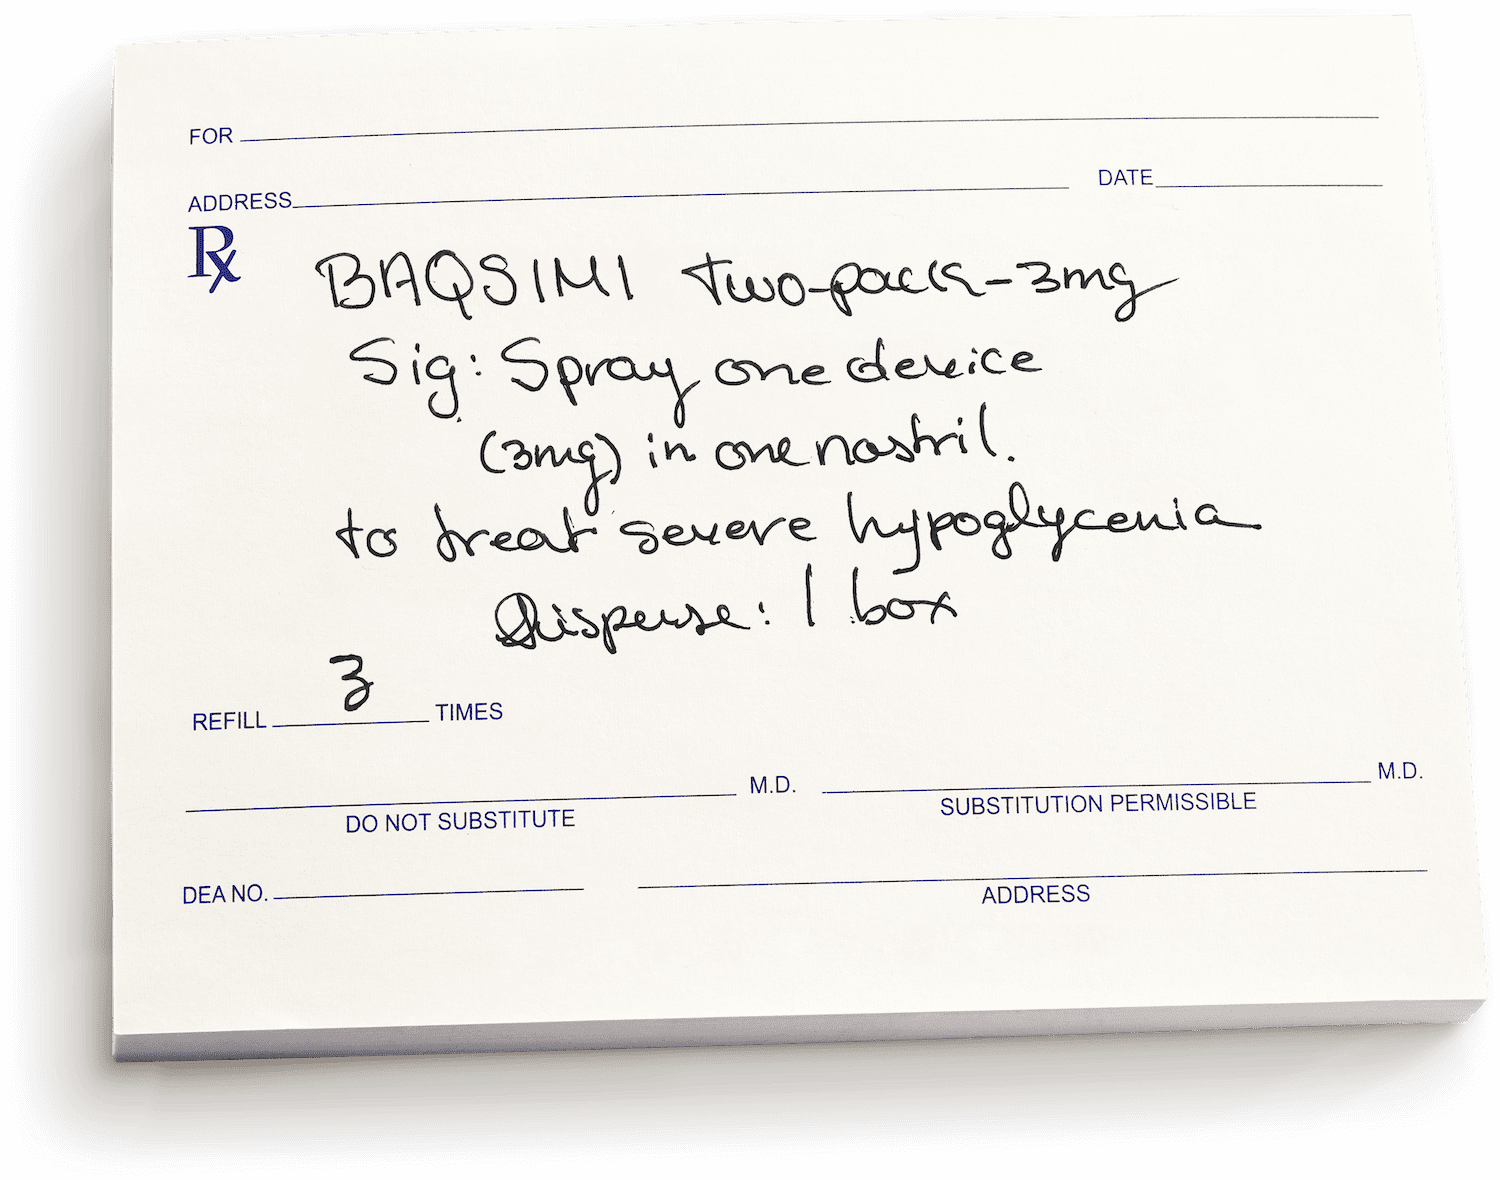 FOR
ADDRESS DATE
Rx BAQSIMI two-pack-3mg
Sig: Spray one device
(3mg) in one nostril.
to treat severe hypoglycemia
Dispense: 1 box
REFILL 3 TIMES
M.D. M.D.
DO NOT SUBSTITUTE SUBSTITUTION PERMISSIBLE
DEA NO.
ADDRESS